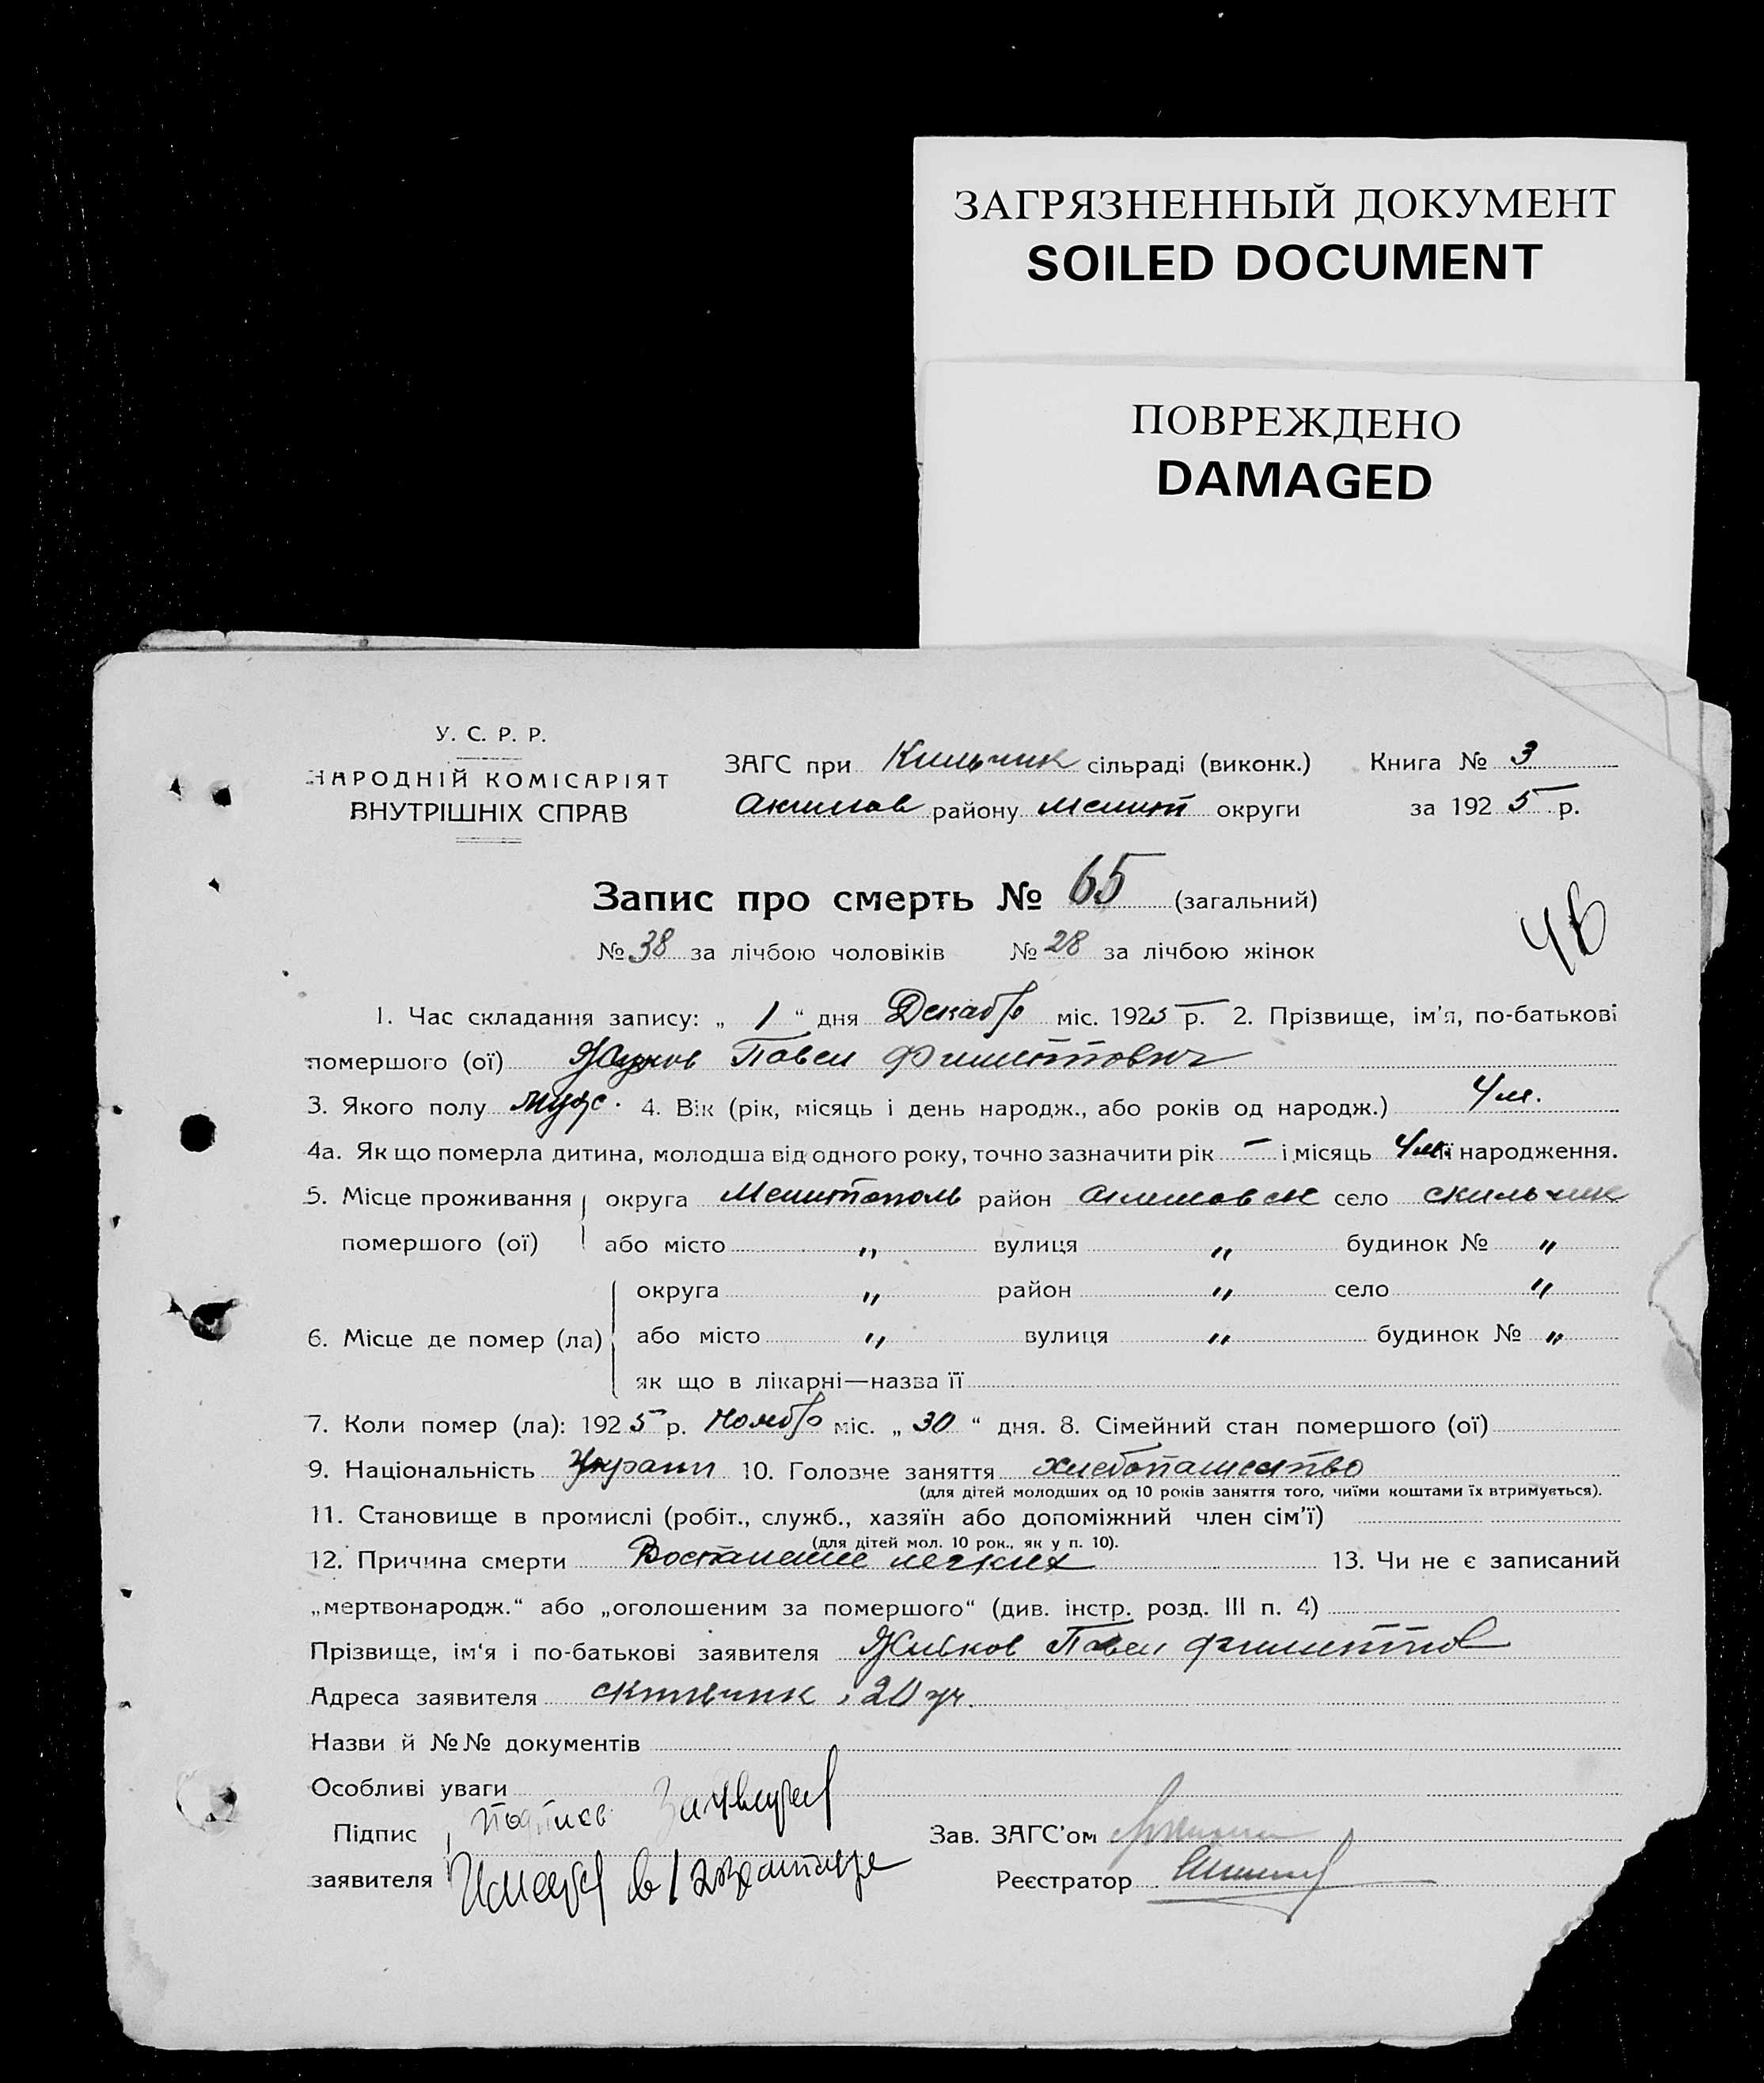 ЗАГРЯЗНЕННЫЙ ДОКУМЕНТ
SOILED DOCUMENT
ПОВРЕЖДЕНО
DAMAGED
У. С. Р. Р.
НАРОДНІЙ КОМІСАРІЯТ
ВНУТРІШНІХ СПРАВ
ЗАГС при Кильчик сільраді (виконк.) Книга № 3
Акимов району Мелит округи за 1925 р.
Запис про смерть № 65 (загальний)
№ 38 за лічбою чоловіків № 28 за лічбою жінок
1. Час складання запису: „ 1 “ дня Декабр міс. 1925 р. 2. Прізвище, ім'я, по-батькові
помершого (ої) Павел Филиппович
3. Якого полу муж. 4. Вік (рік, місяць і день народж., або років од народж.) 4 м.
4а. Як що померла дитина, молодша від одного року, точно зазначити рік – і місяць 4 м. її народження.
5. Місце проживання округа Мелитополь район Акимовск село Скильчик
помершого (ої) або місто „ вулиця „ будинок № „
округа „ район „ село „
6. Місце де помер (ла) або місто „ вулиця „ будинок № „
як що в лікарні—назва її
7. Коли помер (ла): 1925 р. Ноябр міс. „ 30 “ дня. 8. Сімейний стан помершого (ої)
9. Національність Украин 10. Головне заняття хлебопашество
(для дітей молодших од 10 років заняття того, чиїми коштами їх втримується).
11. Становище в промислі (робіт., служб., хазяїн або допоміжний член сім'ї)
(для дітей мол. 10 рок., як у п. 10).
12. Причина смерти Воспаление легких 13. Чи не є записаний
„мертвонародж.“ або „оголошеним за помершого“ (див. інстр. розд. III п. 4)
Прізвище, ім'я і по-батькові заявителя Павел Филиппов
Адреса заявителя Скильчик, 20 уч.
Назви й №№ документів
Особливі уваги
Підпис подпись Зав. ЗАГС'ом
заявителя в 1 экземпляре Реєстратор